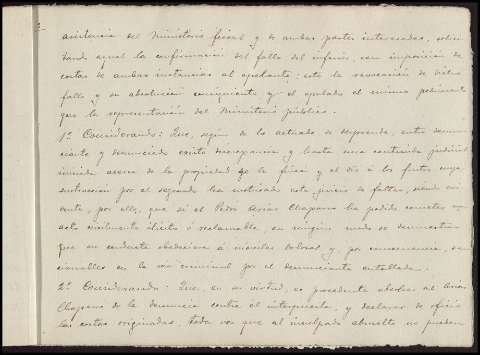 asistencia del Ministerio fiscal y de ambas partes interesadas, solici-
tando aquel la confirmacion del fallo del inferior, con imposición de
costas de ambas instancias al apelante; este la revocacion de dicho
fallo y su absolucion consiguiente y el apelado el mismo pedimento
que la representación del Ministerio público.
1º Considerando: Que, según de lo actuado se desprende, entre denun-
ciante y denunciado existe discrepancia y hasta una contienda judicial
iniciada acerca de la propiedad de la finca y el dro á los frutos cuya
sustraccion por el segundo ha motivado este juicio de faltas, siendo evi-
dente, por ello, que si el Pedro Arias Chaparro ha podido cometer un
acto civilmente ilícito ó reclamable, en ningun modo se demuestra
que su conducta obedeciera á móviles dolosos y, por consecuencia, san-
cionables en la via criminal por el denunciante entablada.
2º Considerando: Que, en su virtud, es procedente absolver al Arias
Chaparro de la denuncia contra él interpuesta, y declarar de oficio
las costas originadas, toda vez que al inculpado absuelto no pueden